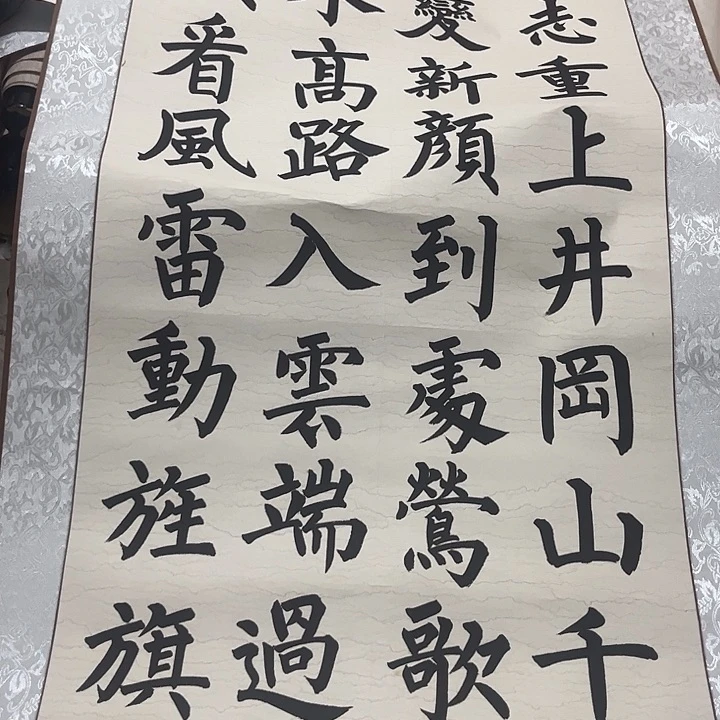 志重上井岡山千
變新顔到處鶯歌
水高路入雲端過
看風雷動旌旗